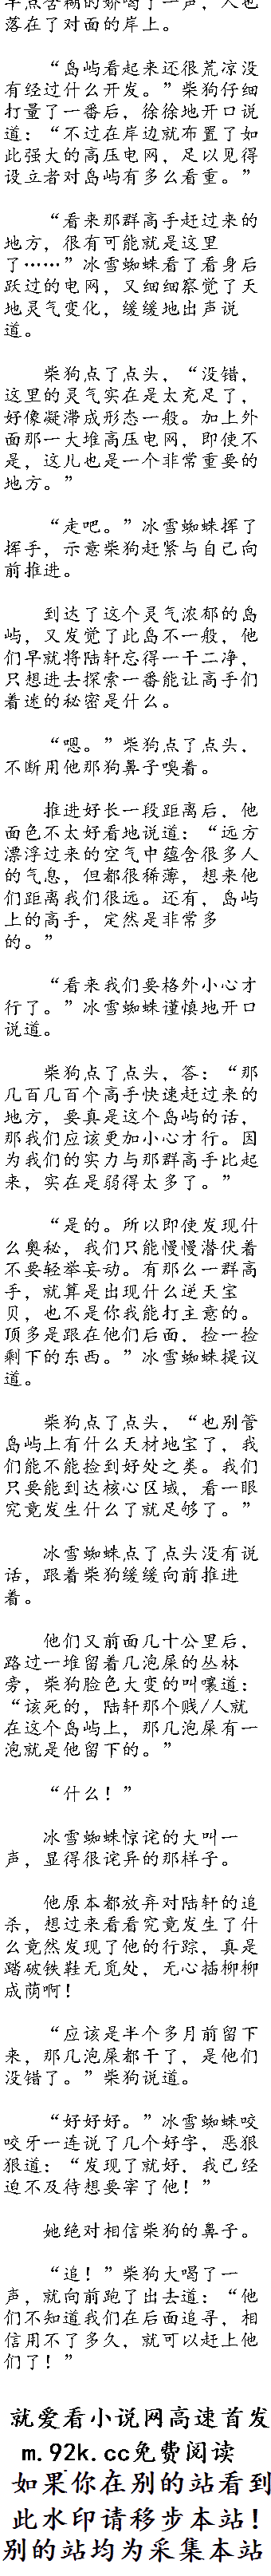 半点含糊的娇喝了一声，人也
落在了对面的岸上。
“岛屿看起来还很荒凉没
有经过什么开发。”柴狗仔细
打量了一番后，徐徐地开口说
道：“不过在岸边就布置了如
此强大的高压电网，足以见得
设立者对岛屿有多么看重。”
“看来那群高手赶过来的
地方，很有可能就是这里
了……”冰雪蜘蛛看了看身后
跃过的电网，又细细察觉了天
地灵气变化，缓缓地出声说
道。
柴狗点了点头，“没错，
这里的灵气实在是太充足了，
好像凝滞成形态一般。加上外
面那一大堆高压电网，即使不
是，这儿也是一个非常重要的
地方。”
“走吧。”冰雪蜘蛛挥了
挥手，示意柴狗赶紧与自己向
前推进。
到达了这个灵气浓郁的岛
屿，又发觉了此岛不一般，他
们早就将陆轩忘得一干二净，
只想进去探索一番能让高手们
着迷的秘密是什么。
“嗯。”柴狗点了点头，
不断用他那狗鼻子嗅着。
推进好长一段距离后，他
面色不太好看地说道：“远方
漂浮过来的空气中蕴含很多人
的气息，但都很稀薄，想来他
们距离我们很远。还有，岛屿
上的高手，定然是非常多
的。”
“看来我们要格外小心才
行了。”冰雪蜘蛛谨慎地开口
说道。
柴狗点了点头，答：“那
几百几百个高手快速赶过来的
地方，要真是这个岛屿的话，
那我们应该更加小心才行。因
为我们的实力与那群高手比起
来，实在是弱得太多了。”
“是的。所以即使发现什
么奥秘，我们只能慢慢潜伏着
不要轻举妄动。有那么一群高
手，就算是出现什么逆天宝
贝，也不是你我能打主意的。
顶多是跟在他们后面，捡一捡
剩下的东西。”冰雪蜘蛛提议
道。
柴狗点了点头，“也别管
岛屿上有什么天材地宝了，我
们能不能捡到好处之类。我们
只要能到达核心区域，看一眼
究竟发生什么了就足够了。”
冰雪蜘蛛点了点头没有说
话，跟着柴狗缓缓向前推进
着。
他们又前面几十公里后，
路过一堆留着几泡屎的丛林
旁，柴狗脸色大变的叫嚷道：
“该死的，陆轩那个贱/人就
在这个岛屿上，那几泡屎有一
泡就是他留下的。”
“什么！”
冰雪蜘蛛惊诧的大叫一
声，显得很诧异的那样子。
他原本都放弃对陆轩的追
杀，想过来看看究竟发生了什
么竟然发现了他的行踪，真是
踏破铁鞋无觅处，无心插柳柳
成荫啊！
“应该是半个多月前留下
来，那几泡屎都干了，是他们
没错了。”柴狗说道。
“好好好。”冰雪蜘蛛咬
咬牙一连说了几个好字，恶狠
狠道：“发现了就好，我已经
迫不及待想要宰了他！”
她绝对相信柴狗的鼻子。
“追！”柴狗大喝了一
声，就向前跑了出去道：“他
们不知道我们在后面追寻，相
信用不了多久，就可以赶上他
们了！”
就爱看小说网高速首发
m.92k.cc免费阅读
如果你在别的站看到
此水印请移步本站！
别的站均为采集本站